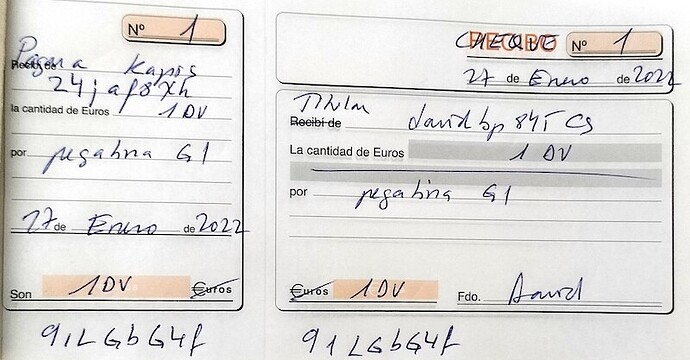 Nº 1
Recibí de
24jaf8Xh
la cantidad de Euros 1DV
por pegatina G1
27 de Enero de 2022
Son 1DV Euros
91LGbG4f
CHEQUE RECIBO Nº 1
27 de Enero de 2022
Titular
Recibí de david bp 84T Cs
La cantidad de Euros 1 DV
por pegatina G1
Euros 1DV Fdo. David
91LGbG4f